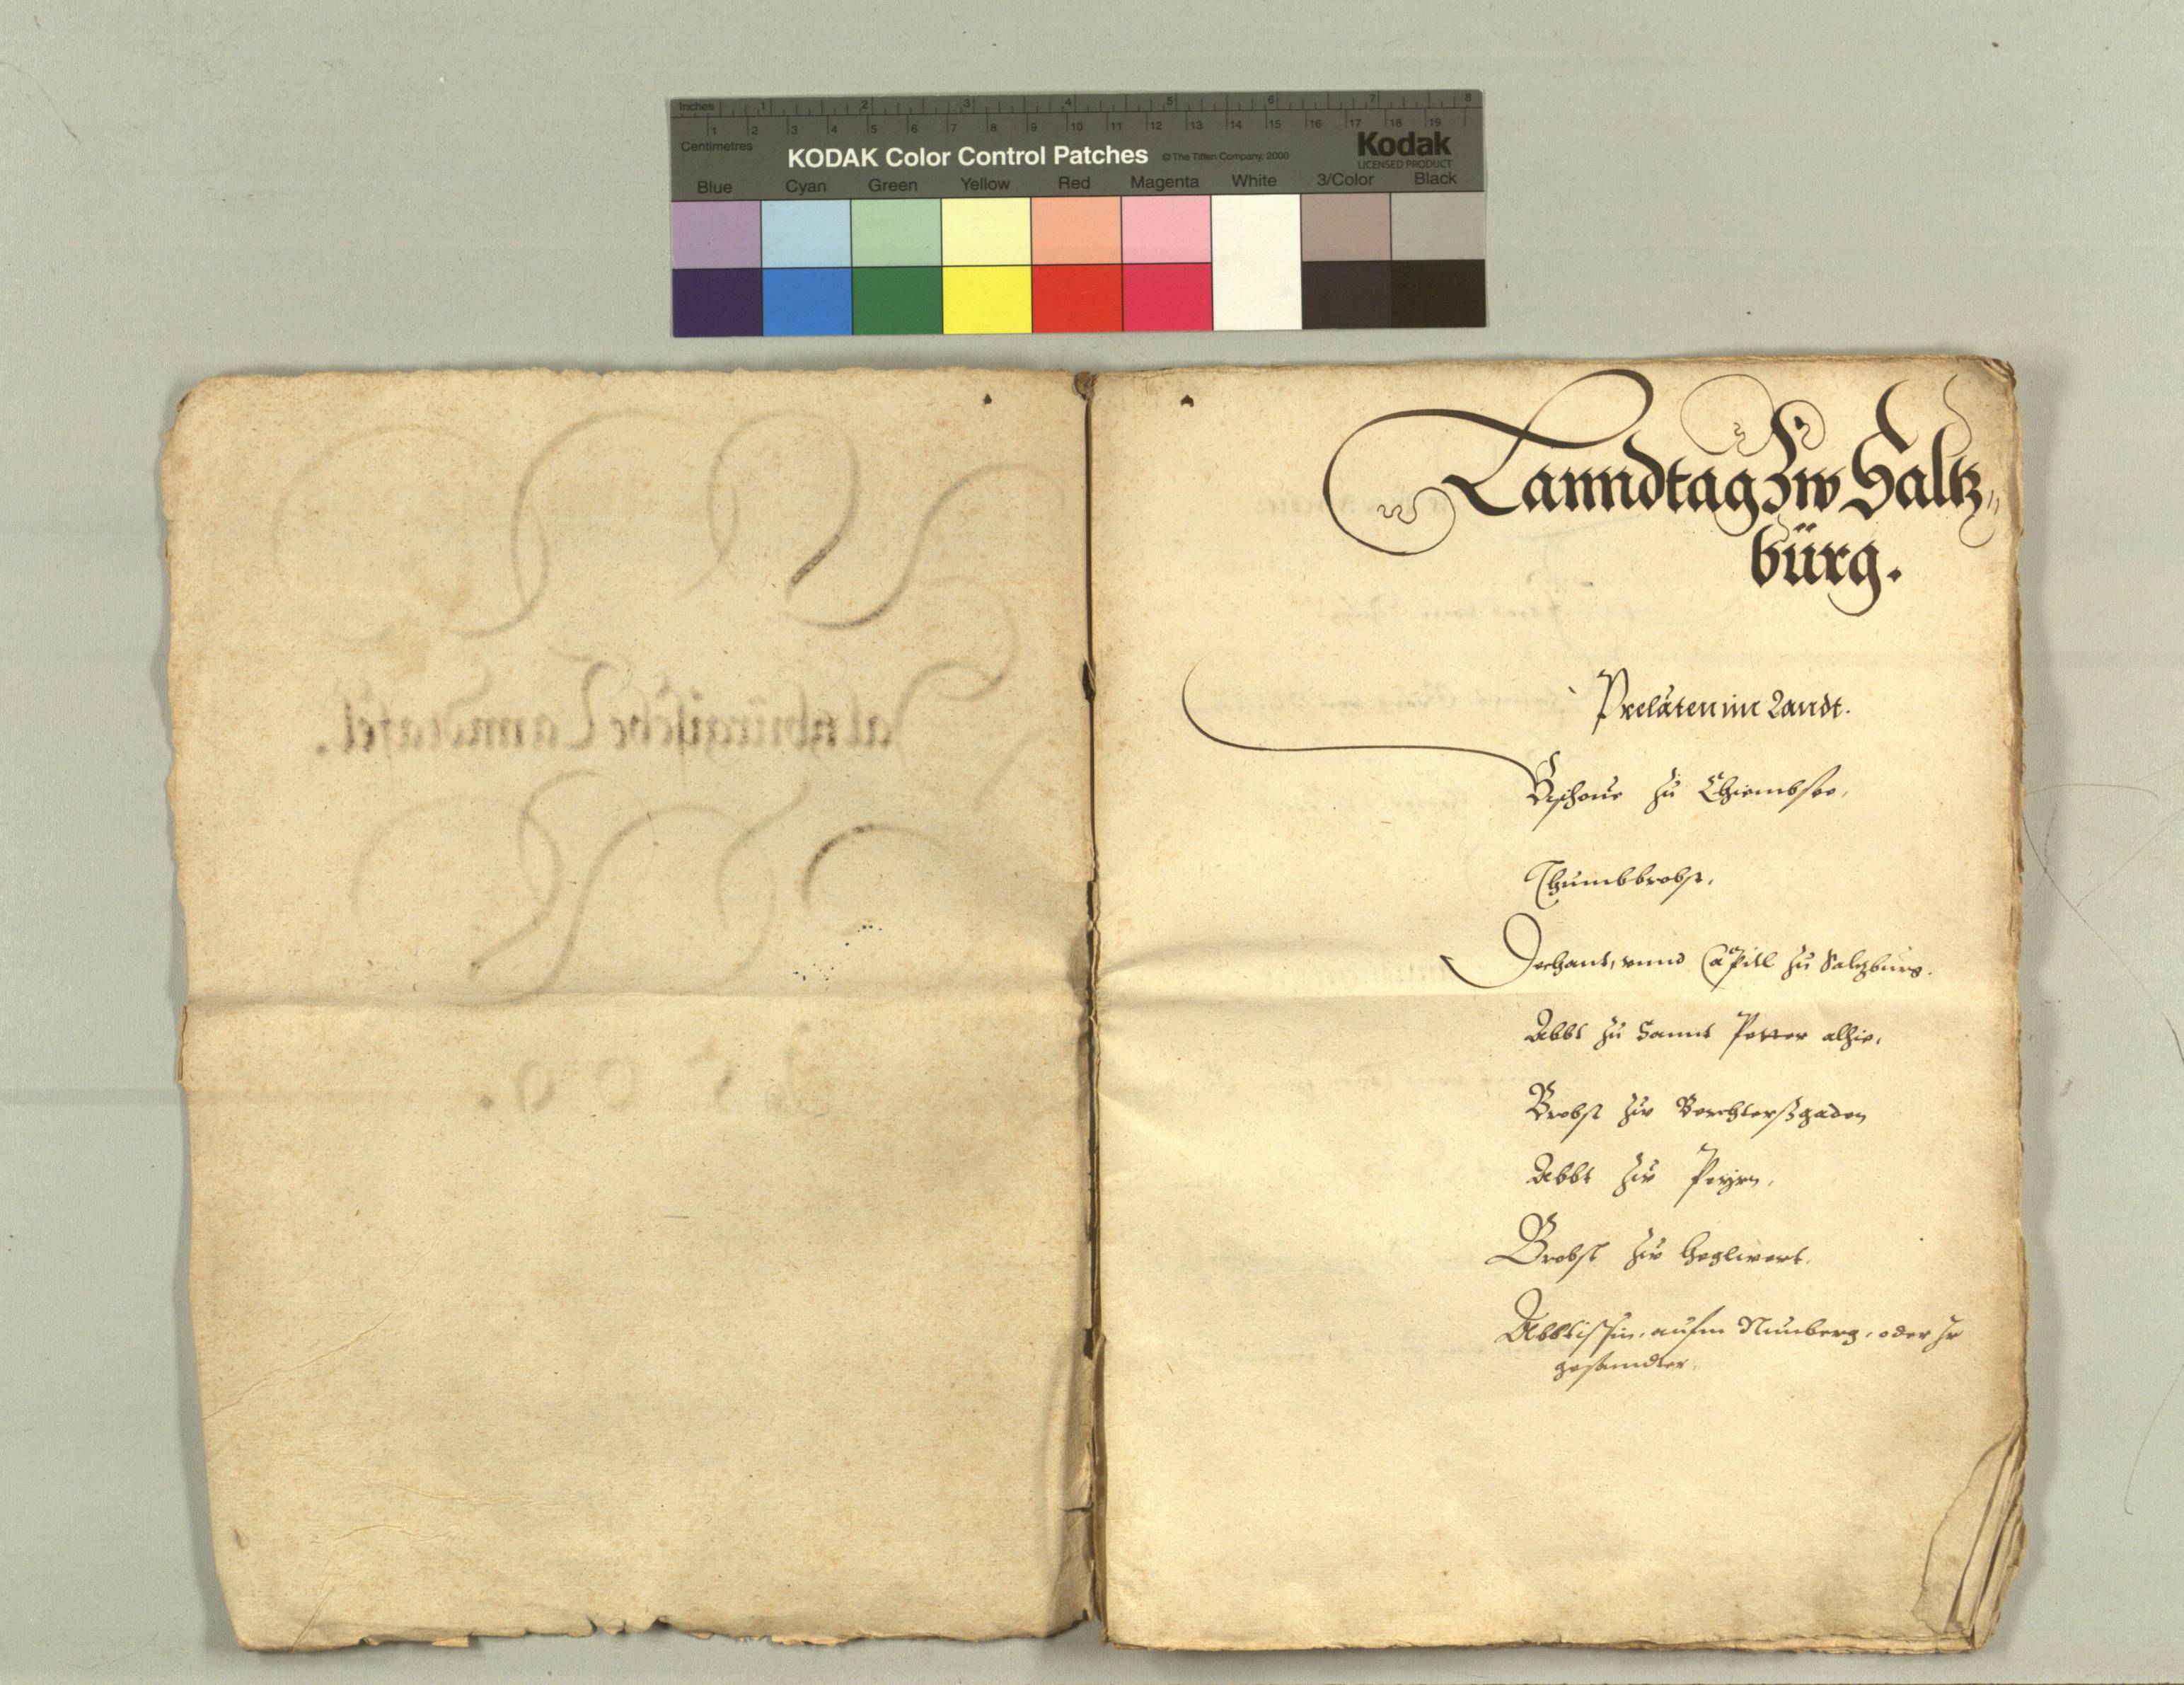 Inches 1 2 3 4 5 6 7 8
1 2 3 4 5 6 7 8 9 10 11 12 13 14 15 16 17 18 19
Centimetres
KODAK Color Control Patches © The Tiffen Company, 2000 Kodak
LICENSED PRODUCT
Blue Cyan Green Yellow Red Magenta White 3/Color Black
Lanndtag zw Saltz„
bürg.
Prelaten im Landt.
Bischoue zu Chiembsee,
Thumbbrobst,
Dechant, vnnd Capitl zu Saltzburg.
Abbt zu Sannt Petter alhie,
Brobst zw Berchterßgaden
Abbt zw Peyrn,
Brobst zw Heglwert.
Abbtissin, aufm Nunberg, oder Ir
gesanndter.